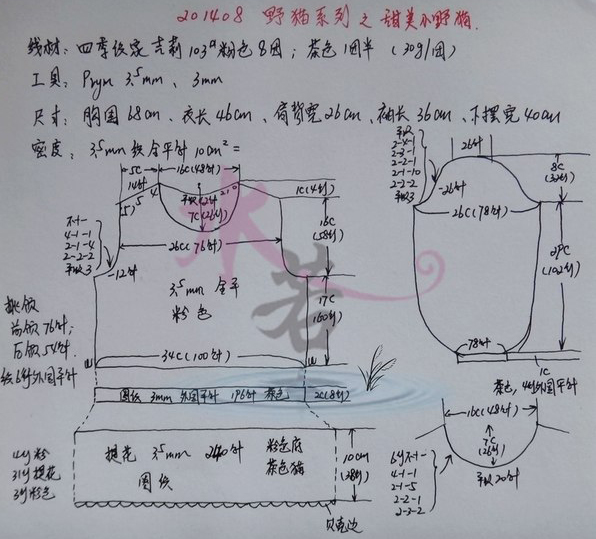 201408 野猫系列之甜美小野猫.
线材: 四季织家吉莉103#粉色8团; 茶色1团半 (30g/团)
工具: Prym 3.5mm、3mm
尺寸: 胸围68cm、衣长46cm、肩背宽26cm、袖长36cm、下摆宽40cm
密度: 3.5mm 织全平针 10cm²=
5C
14针
16C(48针)
1C(4行)
7C(26行)
16C
(58行)
26C(76针)
4-1-1
2-1-4
2-2-2
平收3
-12针
3.5mm 全平
粉色
17C
(60行)
34C(100针)
挑领
前领76针;
后领54针.
织6行外圈平针
图织 3mm 外圈平针 196针 茶色
2C(8行)
4行粉
31行提花
3行粉色
提花 3.5mm 240针 粉色底
茶色猫
图织
10cm
(38行)
贝壳边
26针
2-4-1
2-3-1
2-2-1
2-1-10
2-2-2
平收3
-26针
8C
(32行)
26C(78针)
29C
(102行)
78针
1C
茶色, 4行外圈平针
16C(48针)
7C
(26行)
平收20针
6行不-1-
4-1-1
2-1-5
2-2-1
2-3-2
水若